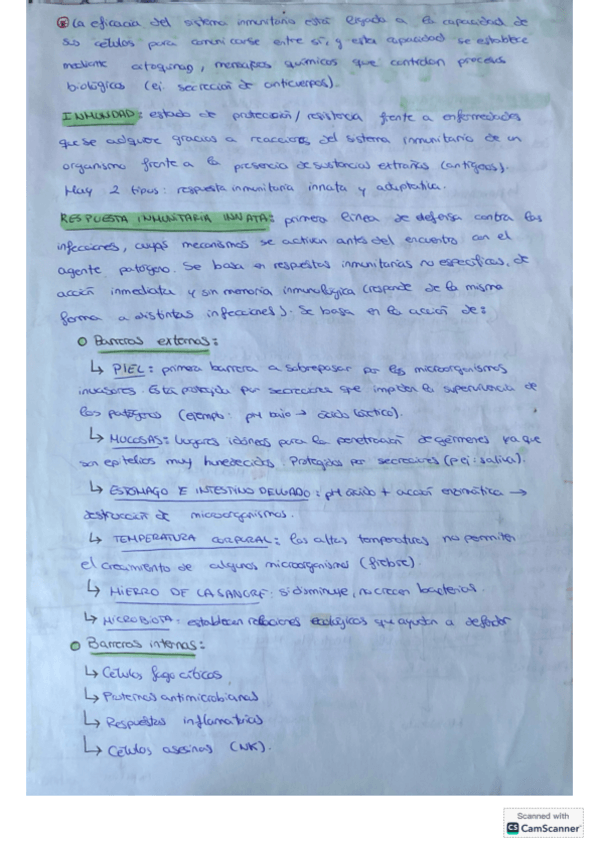 ⊛ La eficacia del sistema inmunitario está ligada a la capacidad de
sus células para comunicarse entre sí, y esta capacidad se establece
mediante citoquinas, mensajeros químicos que controlan procesos
biológicos (ej: secreción de anticuerpos).
INMUNIDAD: estado de protección/resistencia frente a enfermedades
que se adquiere gracias a reacciones del sistema inmunitario de un
organismo frente a la presencia de sustancias extrañas (antígenos).
Hay 2 tipos: respuesta inmunitaria innata y adaptativa.
RESPUESTA INMUNITARIA INNATA: primera línea de defensa contra las
infecciones, cuyos mecanismos se activan antes del encuentro con el
agente patógeno. Se basa en respuestas inmunitarias no específicas, de
acción inmediata y sin memoria inmunológica (responde de la misma
forma a distintas infecciones). Se basa en la acción de:
Barreras externas:
↳ PIEL: primera barrera a sobrepasar por los microorganismos
invasores. Está protegida por secreciones que impiden la supervivencia de
los patógenos (ejemplo: pH bajo → ácido láctico).
↳ MUCOSAS: lugares idóneos para la penetración de gérmenes ya que
son epitelios muy humedecidos. Protegidos por secreciones (p.ej: saliva).
↳ ESTÓMAGO E INTESTINO DELGADO: pH ácido + acción enzimática →
destrucción de microorganismos.
↳ TEMPERATURA CORPORAL: las altas temperaturas no permiten
el crecimiento de algunos microorganismos (fiebre).
↳ HIERRO DE LA SANGRE: si disminuye, no crecen bacterias.
↳ MICROBIOTA: establecen relaciones ecológicas que ayudan a defender
Barreras internas:
↳ Células fagocíticas
↳ Proteínas antimicrobianas
↳ Respuestas inflamatorias
↳ Células asesinas (NK).
Scanned with
CS CamScanner